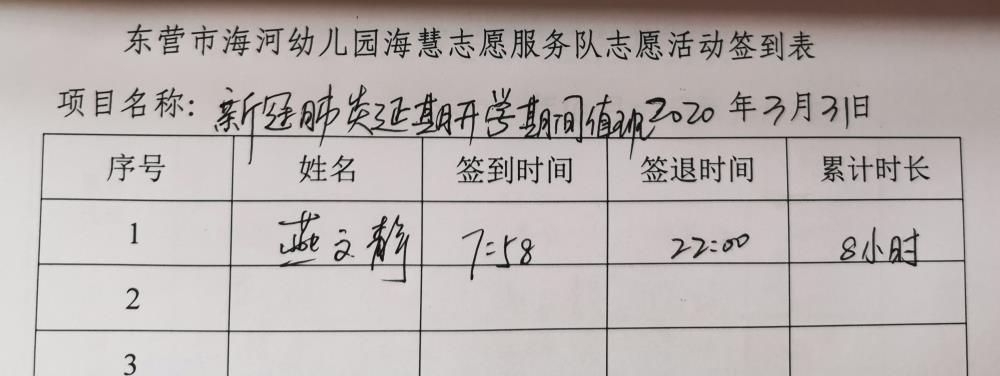 东营市海河幼儿园海慧志愿服务队志愿活动签到表
项目名称：新冠肺炎延期开学期间值班2020年3月31日
序号 姓名 签到时间 签退时间 累计时长
1 燕文静 7:58 22:00 8小时
2
3